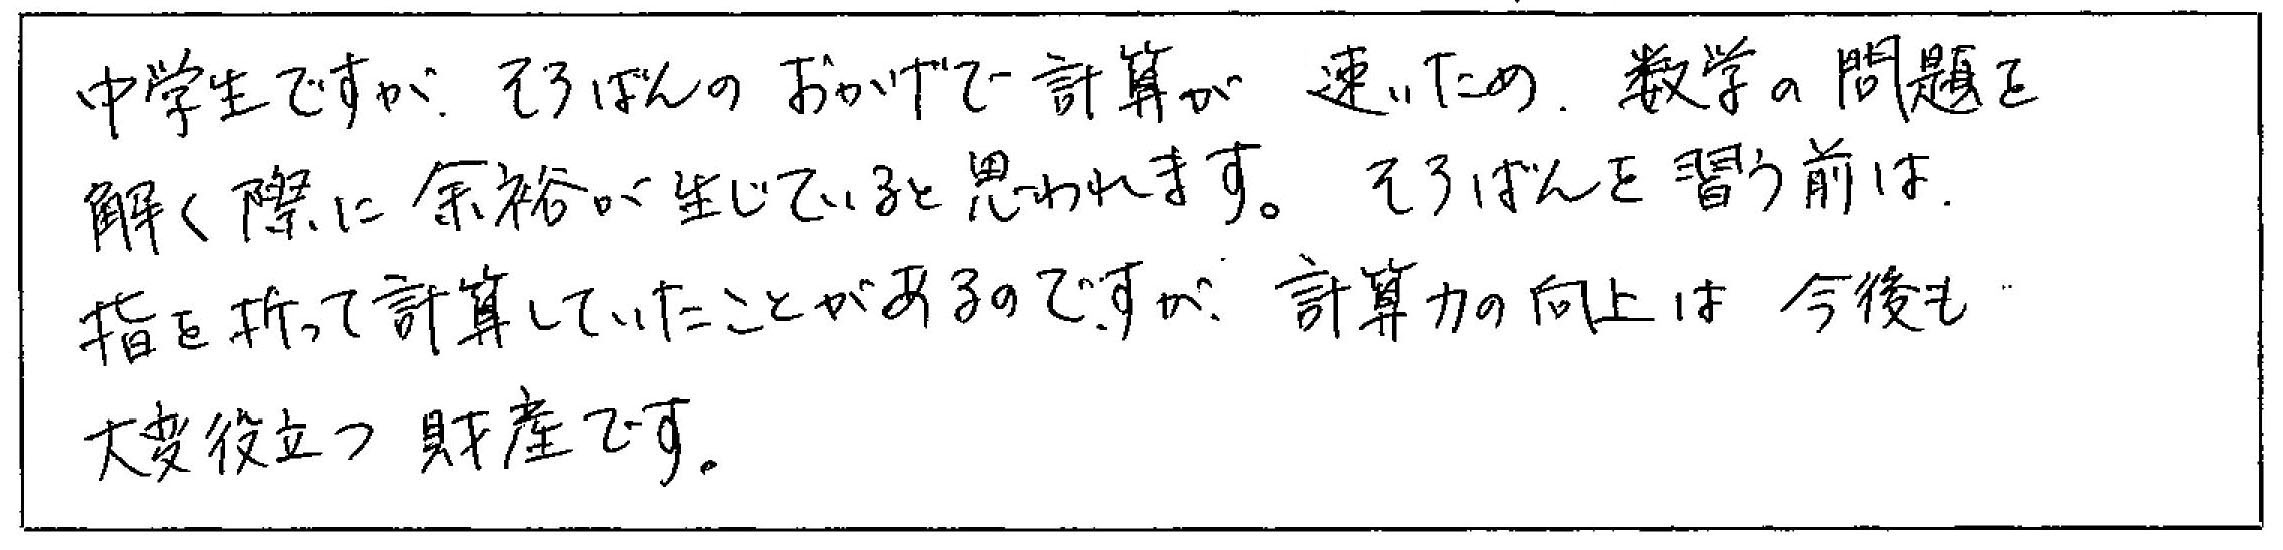 中学生ですが、そろばんのおかげで計算が速いため、数学の問題を
解く際に余裕が生じていると思われます。そろばんを習う前は、
指を折って計算していたことがあるのですが、計算力の向上は今後も
大変役立つ財産です。